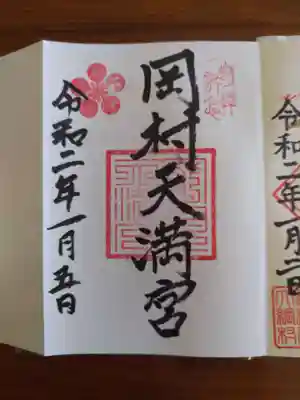 岡村天満宮
令和二年一月五日
令和二年一月二日